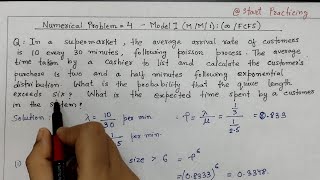 @ Start Practicing
Numerical Problem = 4 - Model I (M/M/1): (∞/FCFS)
Q: In a supermarket, the average arrival rate of customers
is 10 every 30 minutes, following poisson process. The average
time taken by a cashier to list and calculate the customer's
purchase is two and a half minutes following exponential
distribution. What is the probability that the queue length
exceeds six? What is the expected time spent by a customer
in the system?
Solution: λ = 10/30 per min. ρ = λ/μ = 1/3 / 1/2.5 = 0.833
1/2.5 per min
(i) size > 6 = ρ^6
= (0.8333)^6 = 0.3348.